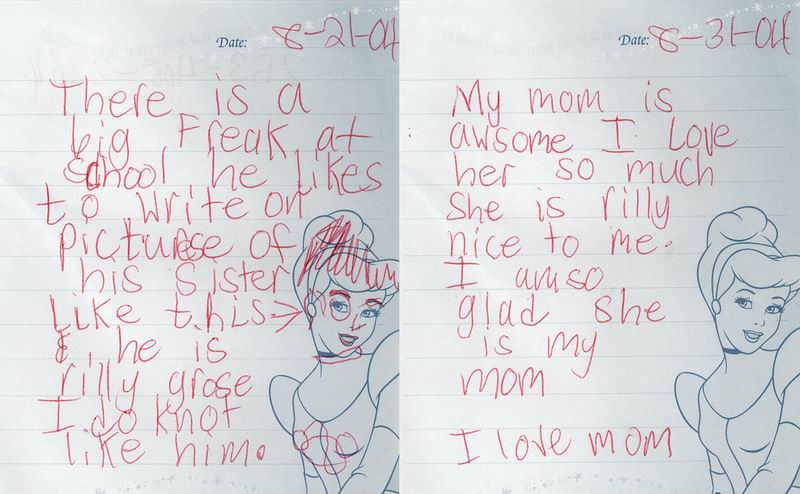 Date: 8-21-04
There is a
big Freak at
School he likes
to write on
picturese of
his Sister
Like this->
&, he is
rilly grose
I do knot
like him.
Date: 8-31-04
My mom is
awsome I Love
her so much
She is rilly
nice to me.
I am so
glad she
is my
mom
I love mom